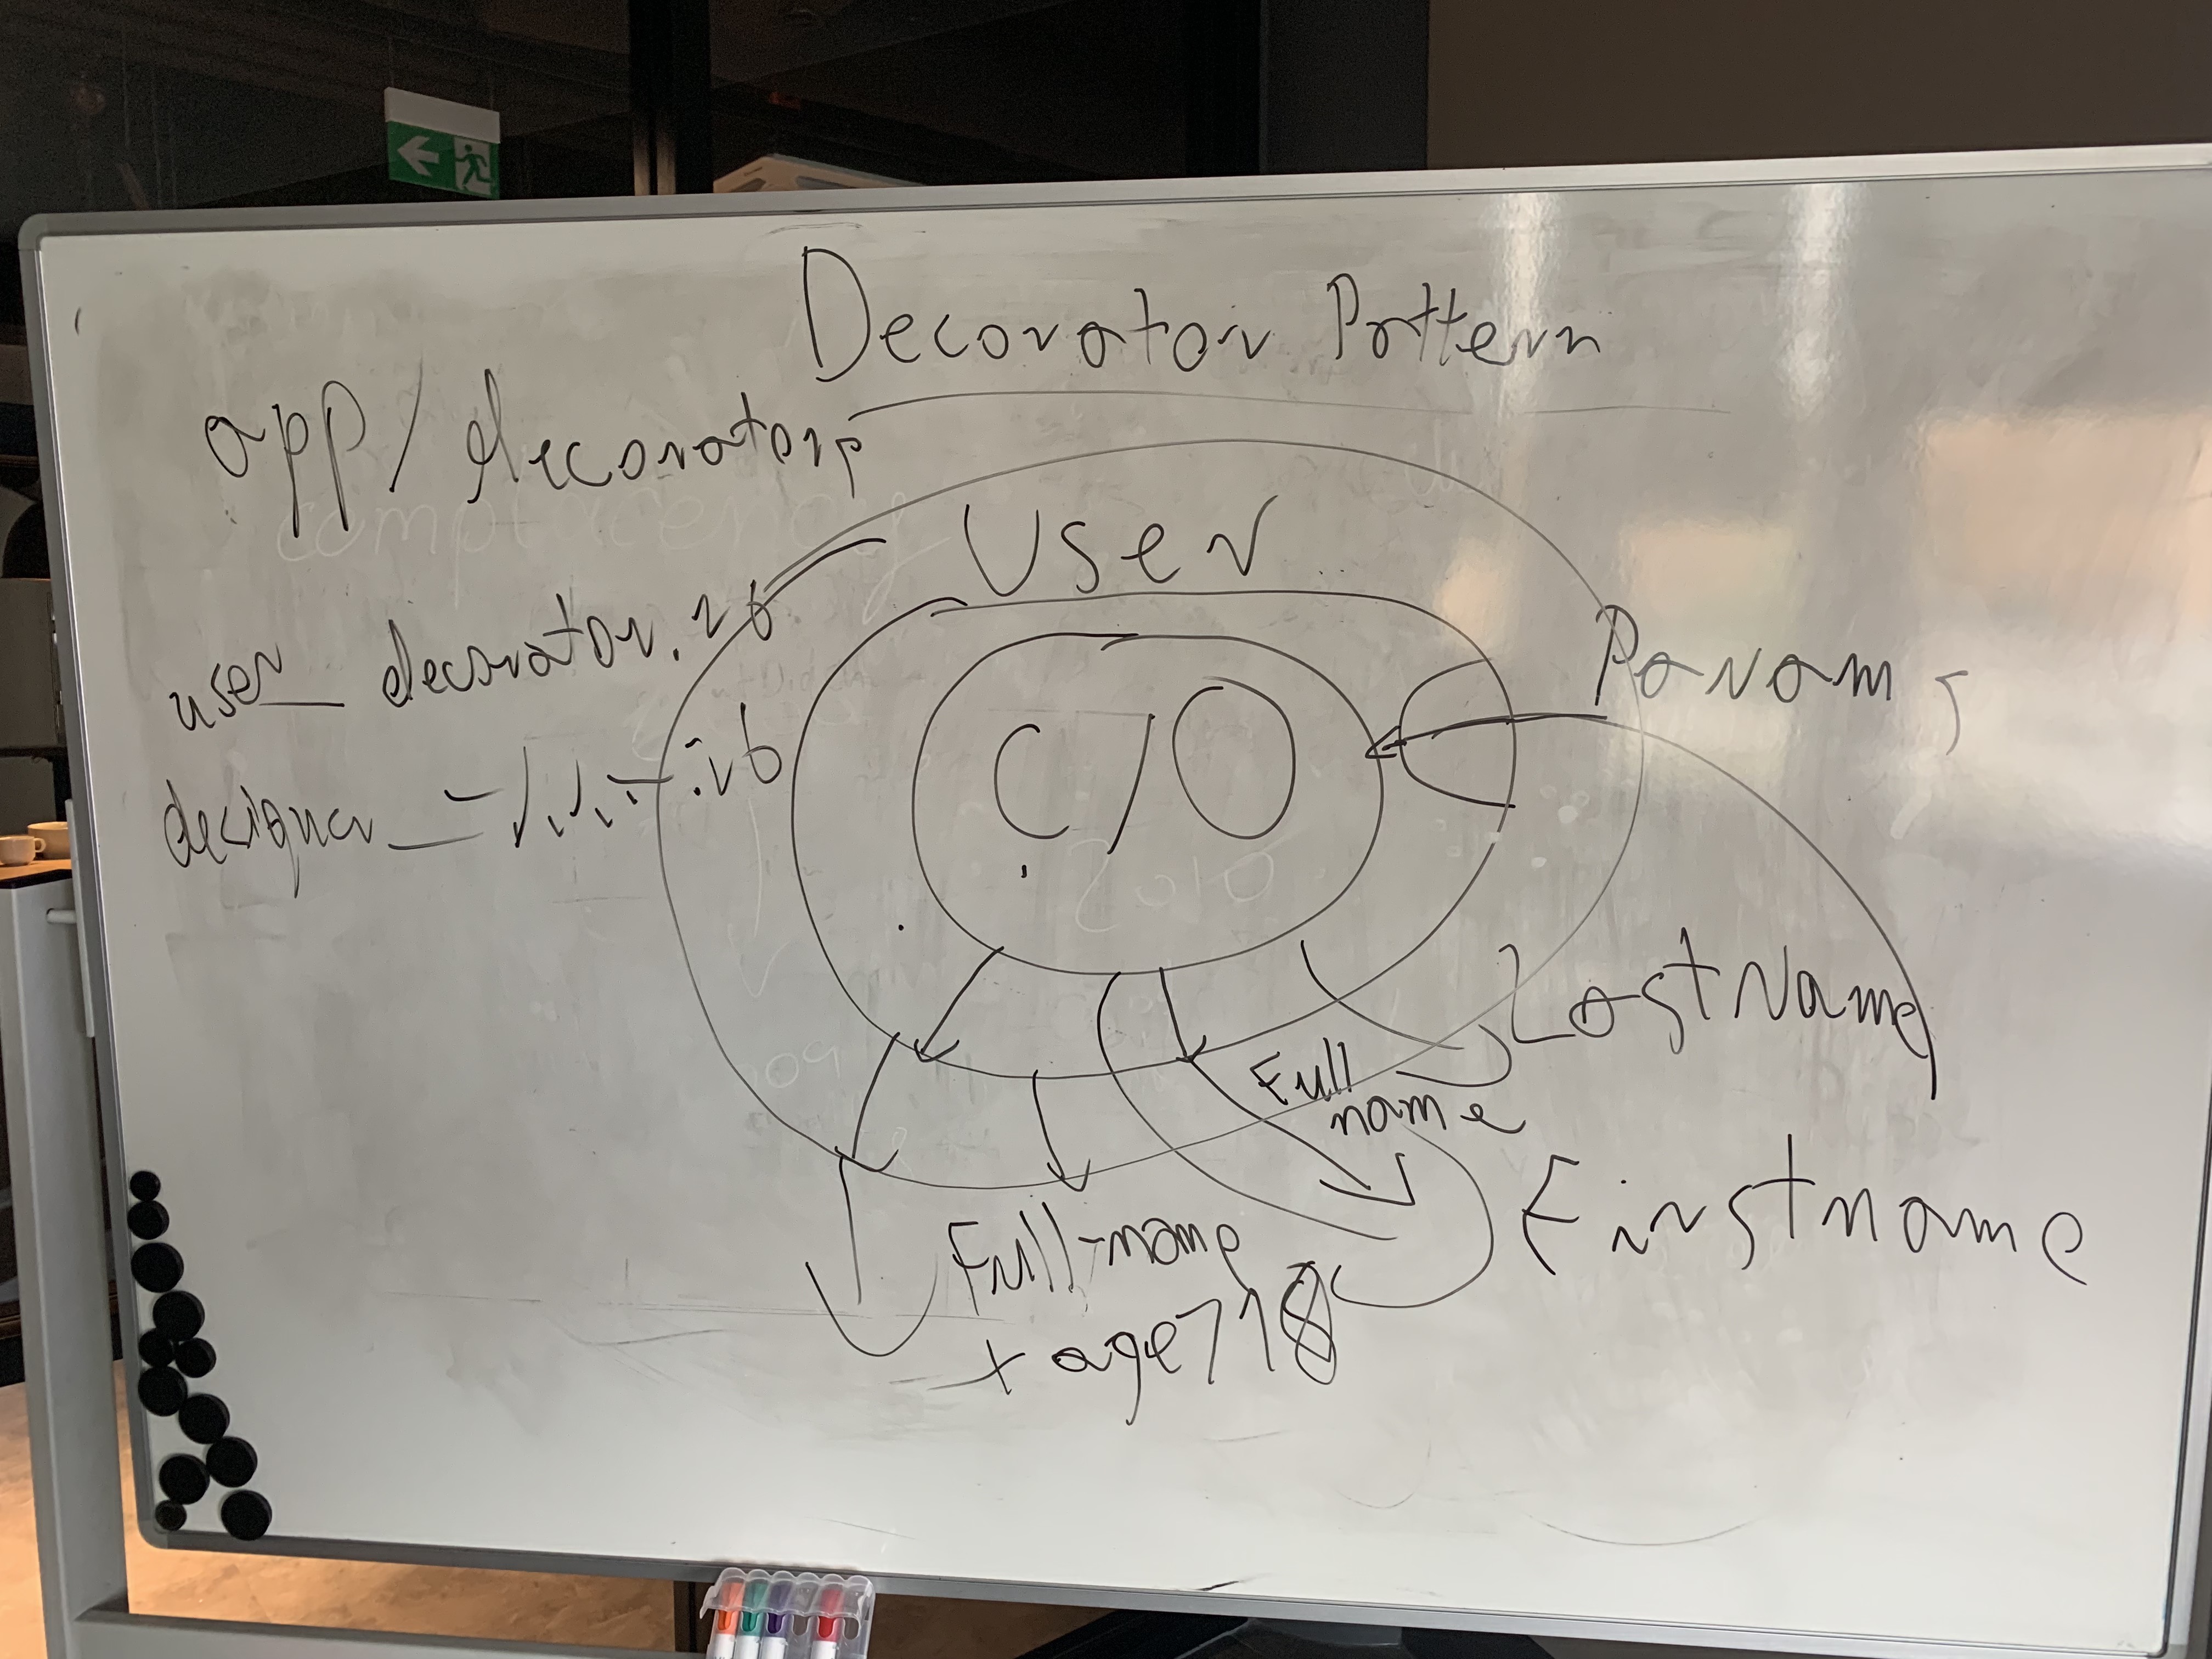 Decorator Pattern
app/decorators
User
user_decorator.rb
Params
designer_
.rb
C/O
LastName
Full
name
Firstname
Full-name
+ age 718